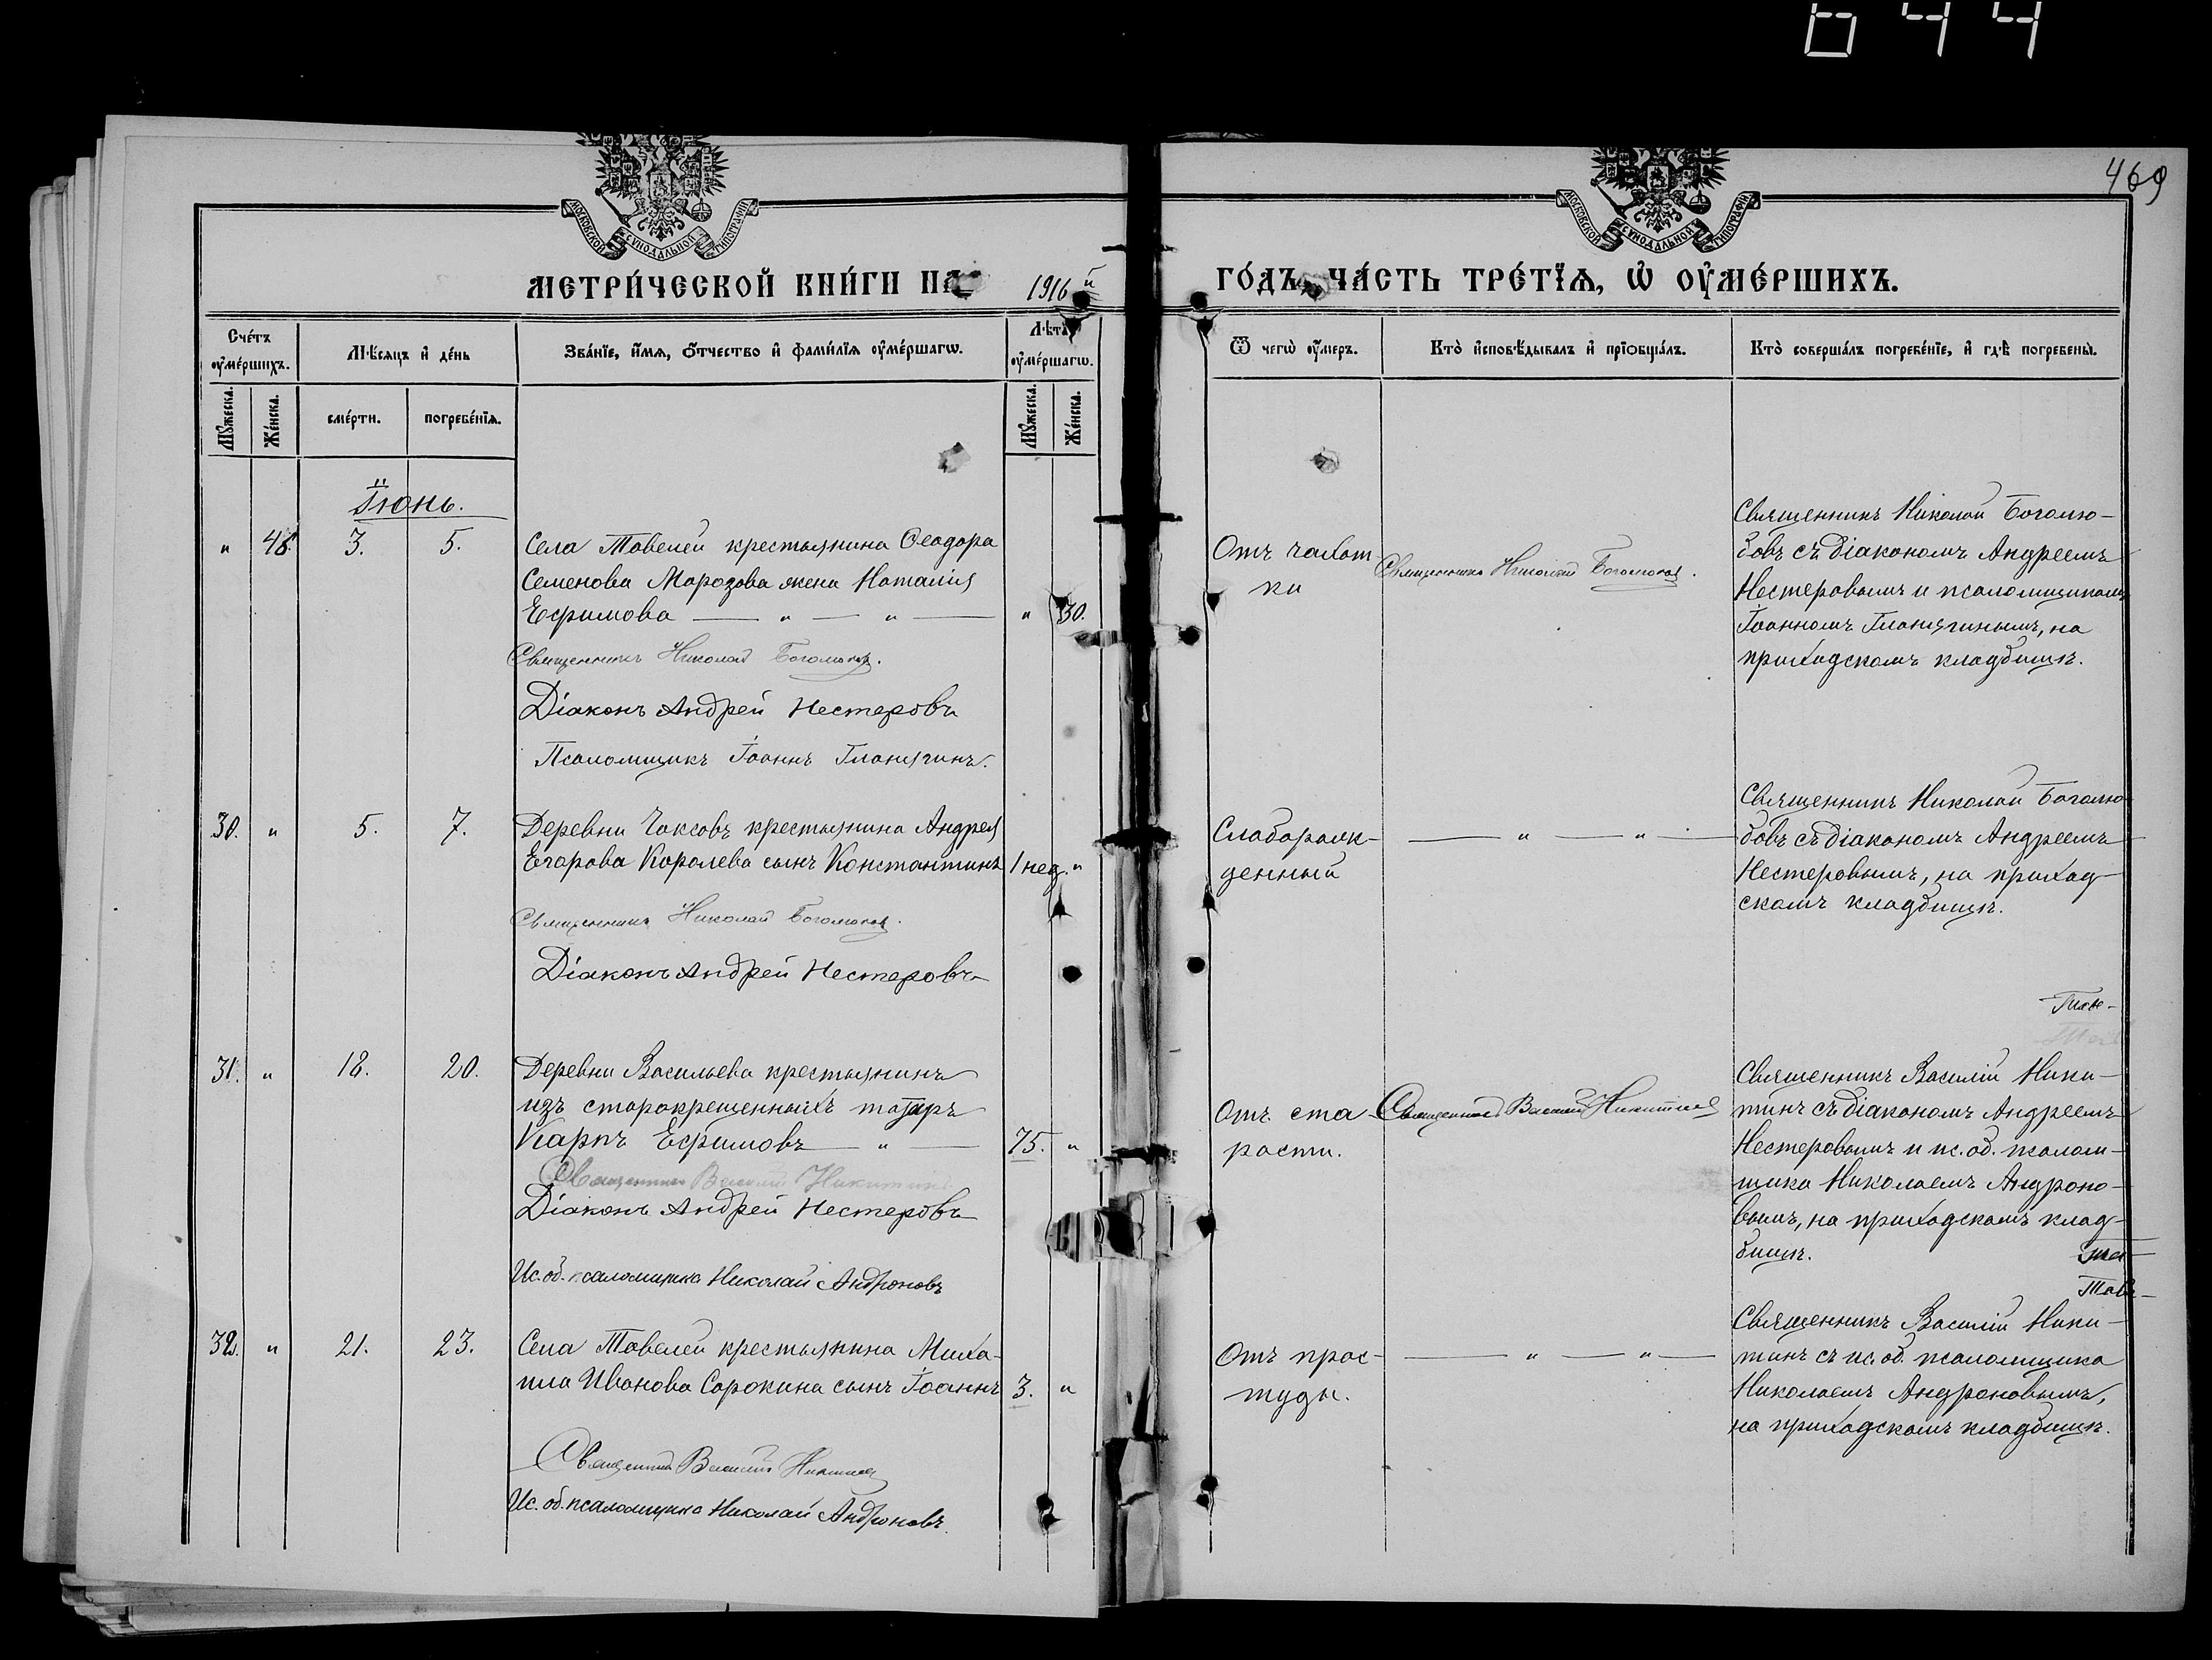 644
469
МОСКОВСКОЙ СѴНОДАЛЬНОЙ ТИПОГРАФІИ
МОСКОВСКОЙ СѴНОДАЛЬНОЙ ТИПОГРАФІИ
МЕТРИ́ЧЕСКОЙ КНИ́ГИ НА 1916й ГО́ДЪ, ЧА́СТЬ ТРЕ́ТЇѦ, Ѡ҆ ОУ҆МЕ́РШИХЪ.
Сче́тъ оу҆ме́ршихъ.
Мѣ́сяцъ и҆ де́нь
Зва́нїе, и҆́мѧ, ѻ҆́тчество и҆ фами́лїѧ оу҆ме́ршагѡ.
Лѣ́та оу҆ме́ршагѡ.
Ѿ чегѡ̀ оу҆́меръ.
Кто̀ и҆сповѣ́дывалъ и҆ прїѡбща́лъ.
Кто̀ соверша́лъ погребе́нїе, и҆ гдѣ̀ погребены̀.
Мꙋ́жеска.
Же́нска.
сме́рти.
погребе́нїѧ.
Мꙋ́жеска.
Же́нска.
Іюнь.
" 48. 3. 5.
Села Тавелей крестьянина Ѳеодора
Семенова Морозова жена Наталія
Ефимова — " — " — " 30.
Священникъ Николай Боголюбов.
Діаконъ Андрей Нестеровъ
Псаломщикъ Іоаннъ Гланягинъ.
Отъ чахот
ки
Священникъ Николай Боголюбов.
Священникъ Николай Боголю-
бовъ съ діакономъ Андреемъ
Нестеровымъ и псаломщикомъ
Іоанномъ Гланягинымъ, на
приходскомъ кладбищѣ.
30. " 5. 7.
Деревни Чаксовъ крестьянина Андрея
Егорова Королева сынъ Константинъ 1 нед. "
Священникъ Николай Боголюбов.
Діаконъ Андрей Нестеровъ
Слаборож-
денный
— " — " —
Священникъ Николай Боголю
бовъ съ діакономъ Андреемъ
Нестеровымъ, на приход-
скомъ кладбищѣ.
31. " 18. 20.
Деревни Васильева крестьянинъ
изъ старокрещенныхъ татаръ
Карпъ Ефимовъ — " — 75. "
Священникъ Василій Никитинъ
Діаконъ Андрей Нестеровъ
Ис. об. псаломщика Николай Андроновъ
Отъ ста
рости.
Священникъ Василій Никитинъ
Священникъ Василій Ники-
тинъ съ діакономъ Андреемъ
Нестеровымъ и ис. об. псалом-
щика Николаемъ Андроно-
вымъ, на приходскомъ клад-
бищѣ.
32. " 21. 23.
Села Тавелей крестьянина Миха-
ила Иванова Сорокина сынъ Іоаннъ 3. "
Священникъ Василій Никитинъ
Ис. об. псаломщика Николай Андроновъ.
Отъ прос-
туды.
— " — " —
Священникъ Василій Ники-
тинъ съ ис. об. псаломщика
Николаемъ Андроновымъ,
на приходскомъ кладбищѣ.